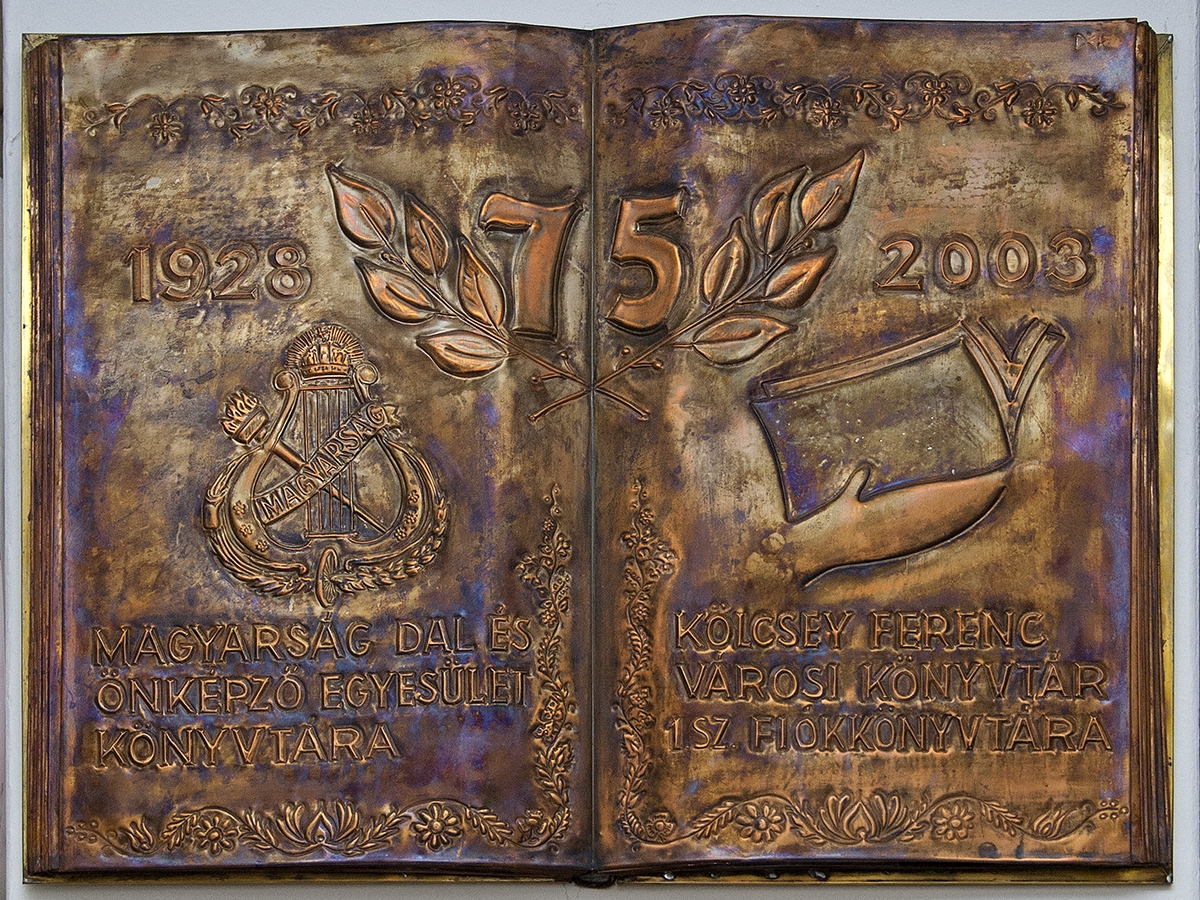 1928
75
2003
MAGYARSÁG
MAGYARSÁG DAL ÉS
ÖNKÉPZŐ EGYESÜLET
KÖNYVTÁRA
KÖLCSEY FERENC
VÁROSI KÖNYVTÁR
1 SZ. FIÓKKÖNYVTÁRA